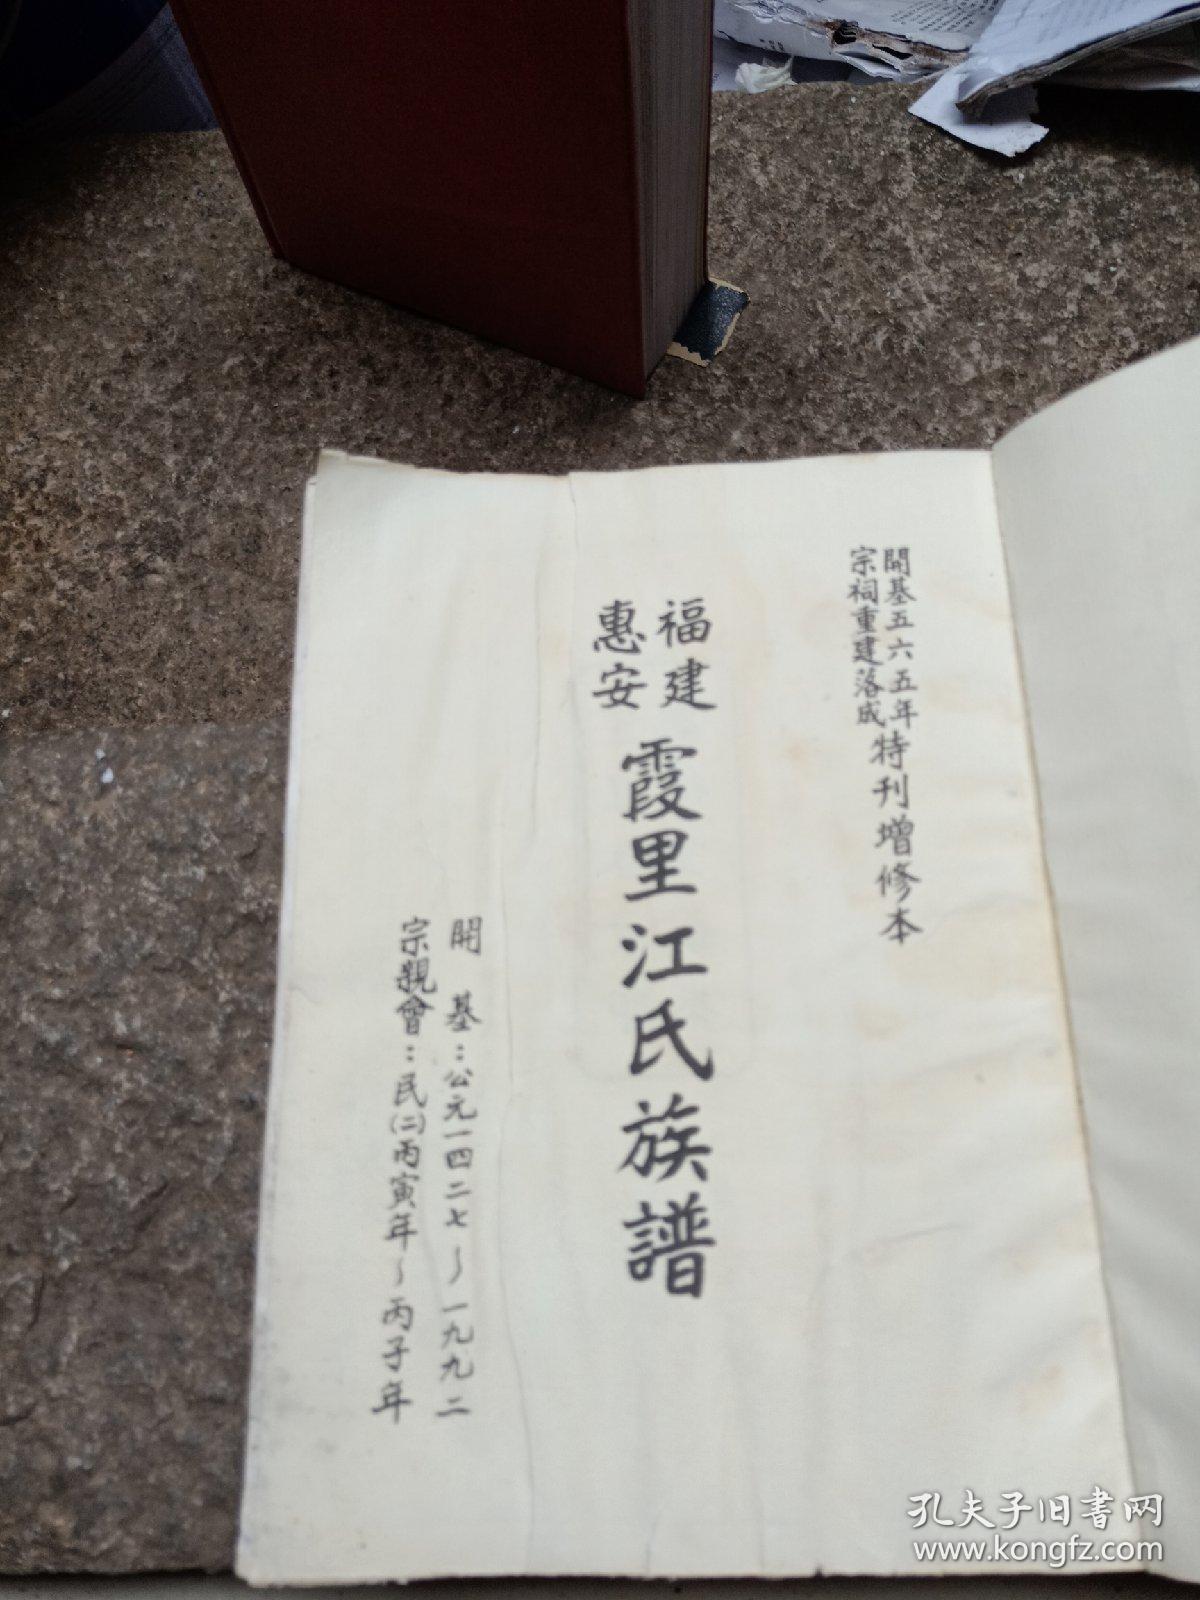 開基五六五年
宗祠重建落成
特刊增修本
福建
惠安
霞里江氏族譜
開基：公元一四二七～一九九二
宗親會：民(二)丙寅年～丙子年
孔夫子旧書网
www.kongfz.com